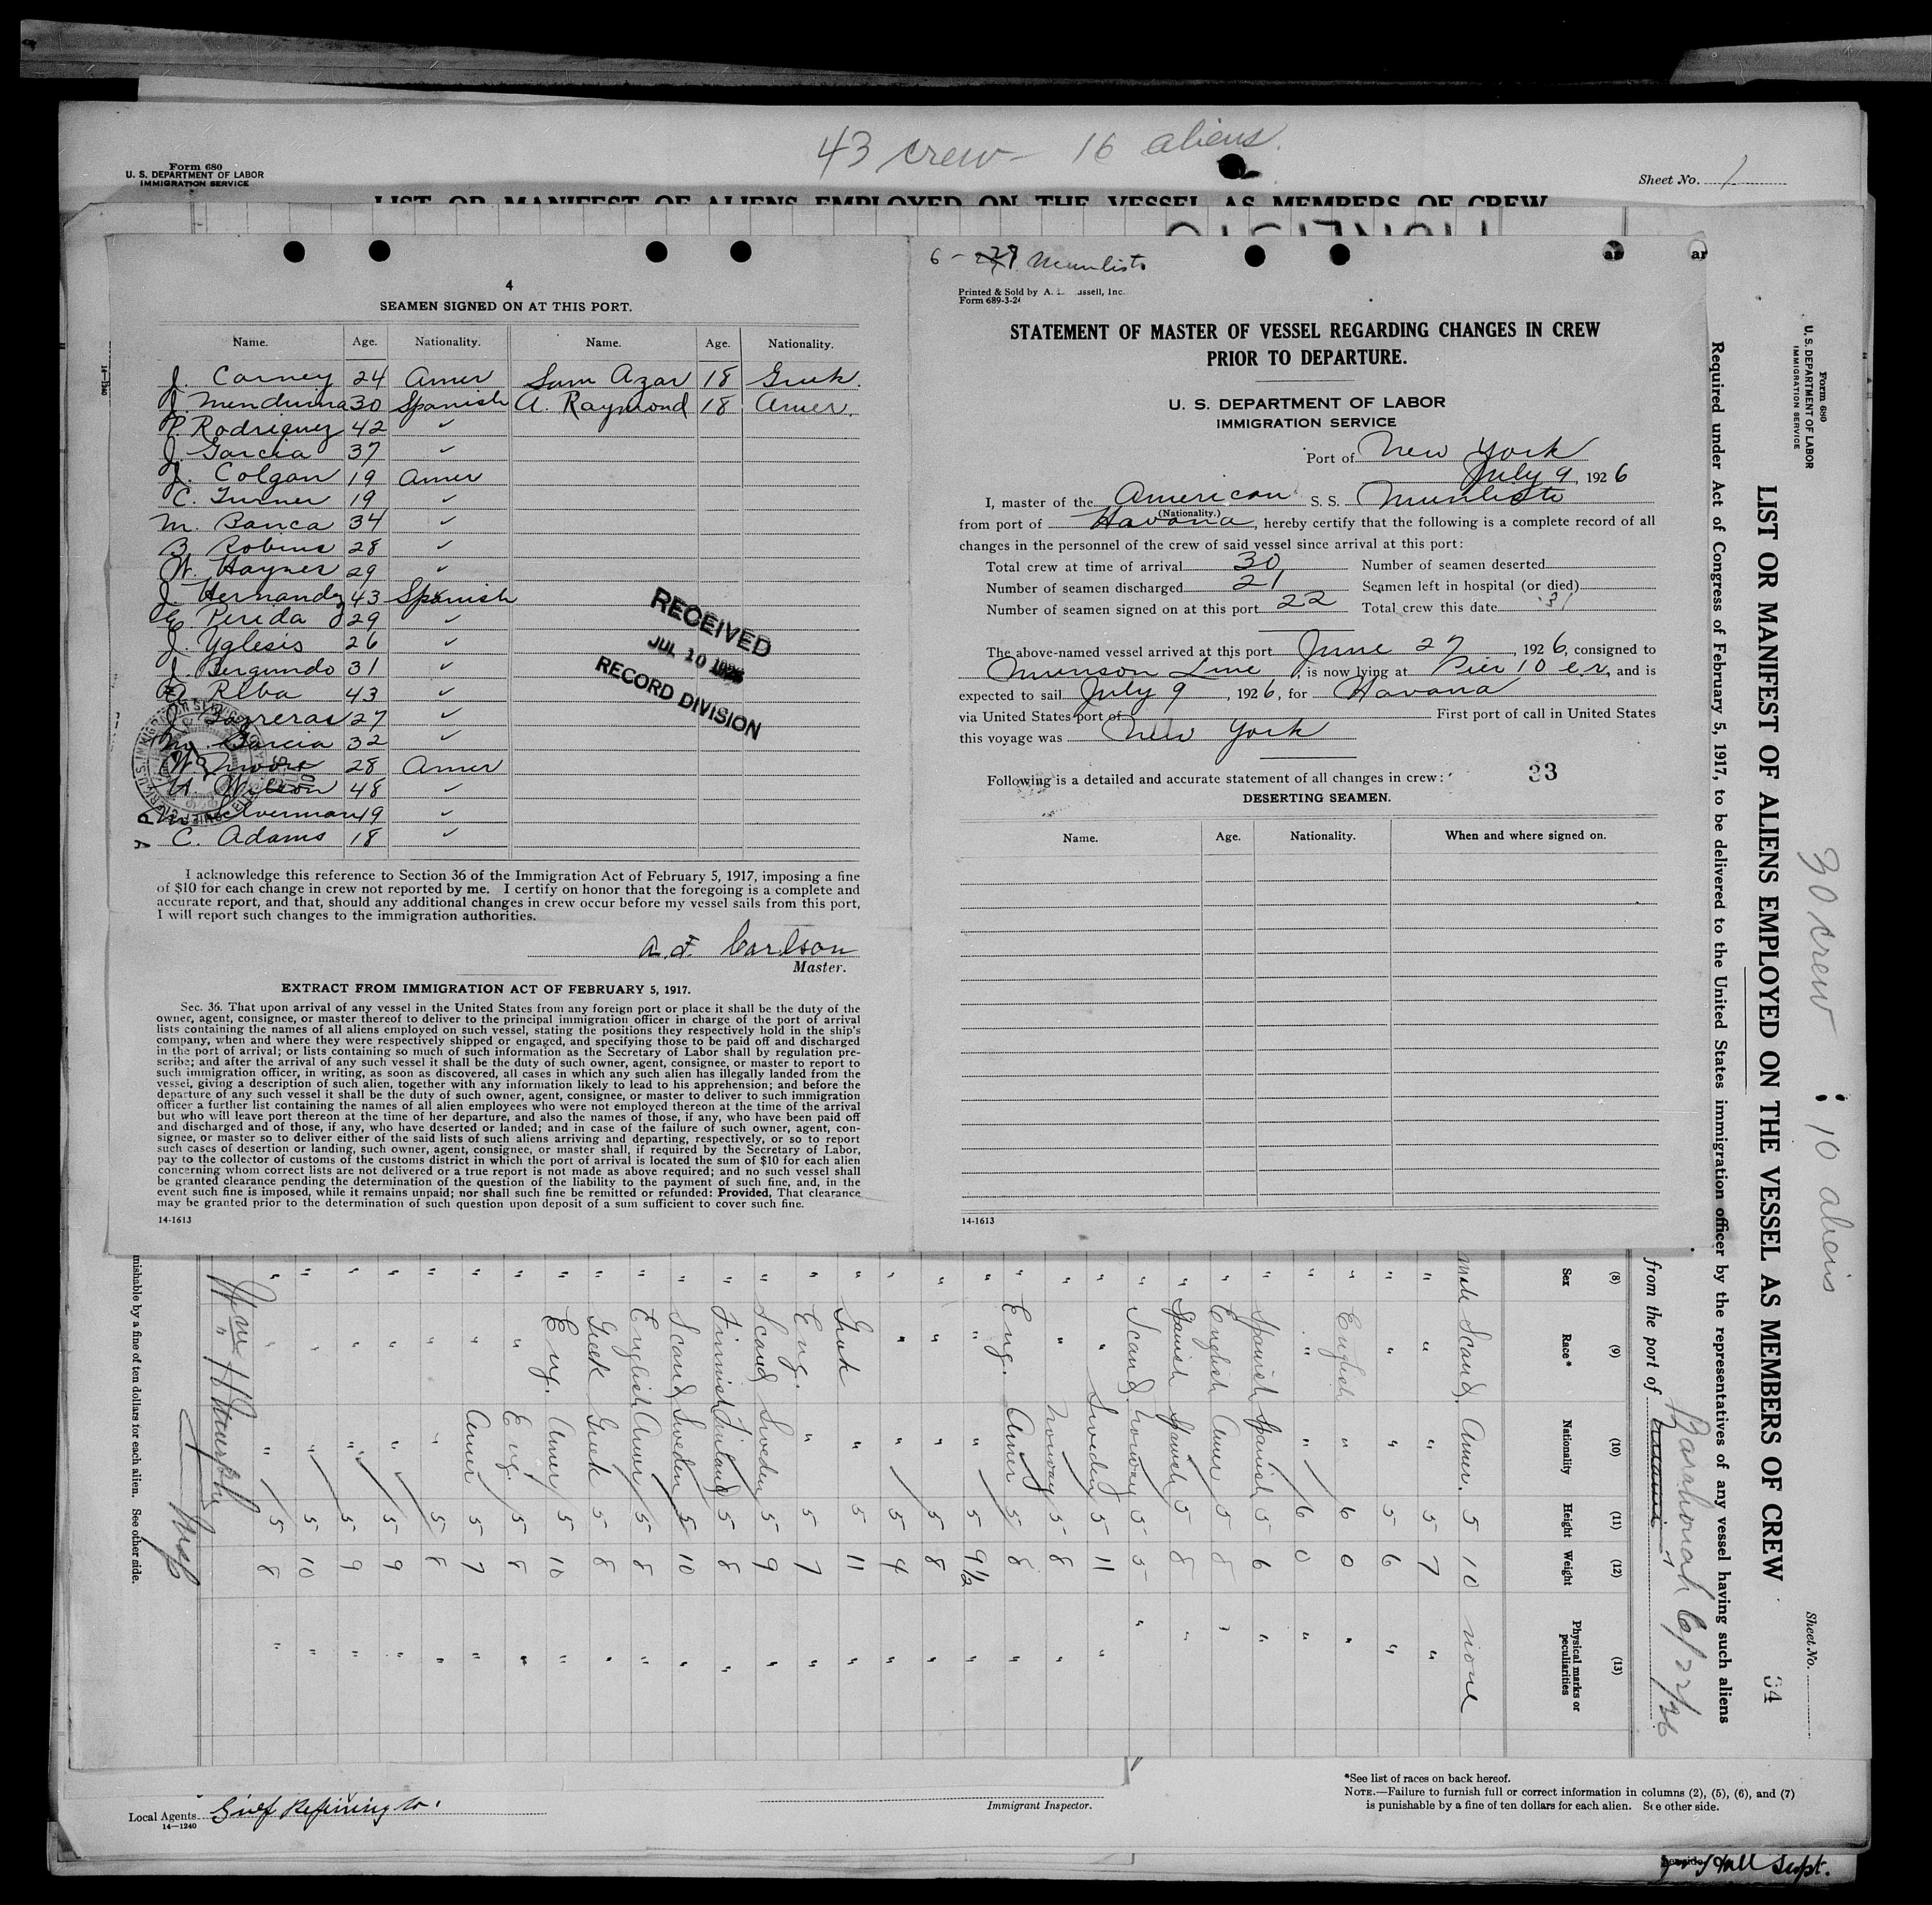 43 crew - 16 aliens.
Form 680
U. S. DEPARTMENT OF LABOR
IMMIGRATION SERVICE
Sheet No. 1
LIST OR MANIFEST OF ALIENS EMPLOYED ON THE VESSEL AS MEMBERS OF CREW
4
SEAMEN SIGNED ON AT THIS PORT.
Name. Age. Nationality. Name. Age. Nationality.
J. Carney 24 Amer Sam Azar 18 Greek.
J. Menduina 30 Spanish A. Raymond 18 Amer.
P. Rodriguez 42 ✓
J. Garcia 37 ✓
J. Colgan 19 Amer
C. Turner 19 ✓
M. Banca 34 ✓
B. Robins 28 ✓
W. Haynes 29 ✓
J. Hernandz 43 Spanish
E. Perida 29 ✓
J. Yglesis 26 ✓
J. Bergundo 31 ✓
Relba 43 ✓
J. Barreras 27 ✓
M. Garcia 32 ✓
W. Moore 28 Amer
Wilson 48 ✓
19 ✓
C. Adams 18 ✓
RECEIVED
JUL 10 1926
RECORD DIVISION
I acknowledge this reference to Section 36 of the Immigration Act of February 5, 1917, imposing a fine
of $10 for each change in crew not reported by me. I certify on honor that the foregoing is a complete and
accurate report, and that, should any additional changes in crew occur before my vessel sails from this port,
I will report such changes to the immigration authorities.
A. F. Carlson
Master.
EXTRACT FROM IMMIGRATION ACT OF FEBRUARY 5, 1917.
Sec. 36. That upon arrival of any vessel in the United States from any foreign port or place it shall be the duty of the
owner, agent, consignee, or master thereof to deliver to the principal immigration officer in charge of the port of arrival
lists containing the names of all aliens employed on such vessel, stating the positions they respectively hold in the ship's
company, when and where they were respectively shipped or engaged, and specifying those to be paid off and discharged
in the port of arrival; or lists containing so much of such information as the Secretary of Labor shall by regulation pre-
scribe; and after the arrival of any such vessel it shall be the duty of such owner, agent, consignee, or master to report to
such immigration officer, in writing, as soon as discovered, all cases in which any such alien has illegally landed from the
vessel, giving a description of such alien, together with any information likely to lead to his apprehension; and before the
departure of any such vessel it shall be the duty of such owner, agent, consignee, or master to deliver to such immigration
officer a further list containing the names of all alien employees who were not employed thereon at the time of the arrival
but who will leave port thereon at the time of her departure, and also the names of those, if any, who have been paid off
and discharged and of those, if any, who have deserted or landed; and in case of the failure of such owner, agent, con-
signee, or master so to deliver either of the said lists of such aliens arriving and departing, respectively, or so to report
such cases of desertion or landing, such owner, agent, consignee, or master shall, if required by the Secretary of Labor,
pay to the collector of customs of the customs district in which the port of arrival is located the sum of $10 for each alien
concerning whom correct lists are not delivered or a true report is not made as above required; and no such vessel shall
be granted clearance pending the determination of the question of the liability to the payment of such fine, and, in the
event such fine is imposed, while it remains unpaid; nor shall such fine be remitted or refunded: Provided, That clearance
may be granted prior to the determination of such question upon deposit of a sum sufficient to cover such fine.
14-1613
6 - Munlisto
Printed & Sold by A. ussell, Inc.
Form 689-3-24
STATEMENT OF MASTER OF VESSEL REGARDING CHANGES IN CREW
PRIOR TO DEPARTURE.
U. S. DEPARTMENT OF LABOR
IMMIGRATION SERVICE
Port of New York
July 9, 1926
I, master of the American S. S. Munlisto
(Nationality.)
from port of Havana, hereby certify that the following is a complete record of all
changes in the personnel of the crew of said vessel since arrival at this port:
Total crew at time of arrival 30 Number of seamen deserted
Number of seamen discharged 21 Seamen left in hospital (or died)
Number of seamen signed on at this port 22 Total crew this date 31
The above-named vessel arrived at this port June 27, 1926, consigned to
Munson Line, is now lying at Pier 10 e.r., and is
expected to sail July 9, 1926, for Havana
via United States port of First port of call in United States
this voyage was New York
Following is a detailed and accurate statement of all changes in crew: 33
DESERTING SEAMEN.
Name. Age. Nationality. When and where signed on.
14-1613
Form 680
U. S. DEPARTMENT OF LABOR
IMMIGRATION SERVICE
30 crew : 10 aliens
Sheet No.
LIST OR MANIFEST OF ALIENS EMPLOYED ON THE VESSEL AS MEMBERS OF CREW 34
Required under Act of Congress of February 5, 1917, to be delivered to the United States immigration officer by the representatives of any vessel having such aliens
from the port of 6/22/26
(8) (9) (10) (11) (12) (13)
Sex Race* Nationality Height Weight Physical marks or peculiarities
male Scand. Amer. 5 10 none
" " " 5 7 "
" " " 5 6 "
" English " 6 0 "
" " " 6 0 "
" Spanish Spanish 5 6 "
" English Amer 5 8 "
" Spanish Spanish 5 8 "
" Scand. Norway 5 5 "
" " Sweden 5 11 "
" " Norway 5 8 "
" Eng. Amer 5 8 "
" " " 5 9½ "
" " " 5 8 "
" " " 5 4 "
" Greek " 5 11 "
" Eng. " 5 7 "
" Scand Sweden 5 9 "
" Finnish Finland 5 8 "
" Scand Sweden 5 10 "
" English Amer 5 8 "
" Greek Greek 5 8 "
" Eng. Amer 5 10 "
" " Eng. 5 8 "
" " Amer 5 7 "
" " " 5 8 "
" " " 5 9 "
" " " 5 9 "
" " " 5 10 "
" " " 5 8 "
Wm H Murphy
Insp
mishable by a fine of ten dollars for each alien. See other side.
Local Agents Gulf Refining Co.
14—1240
Immigrant Inspector.
*See list of races on back hereof.
NOTE.—Failure to furnish full or correct information in columns (2), (5), (6), and (7)
is punishable by a fine of ten dollars for each alien. See other side.
Hall Supt.